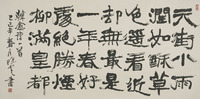 天街小雨
潤如酥草
色遙看近
却無最是
一年春好
處絕勝煙
柳滿皇都
韓愈詩一首